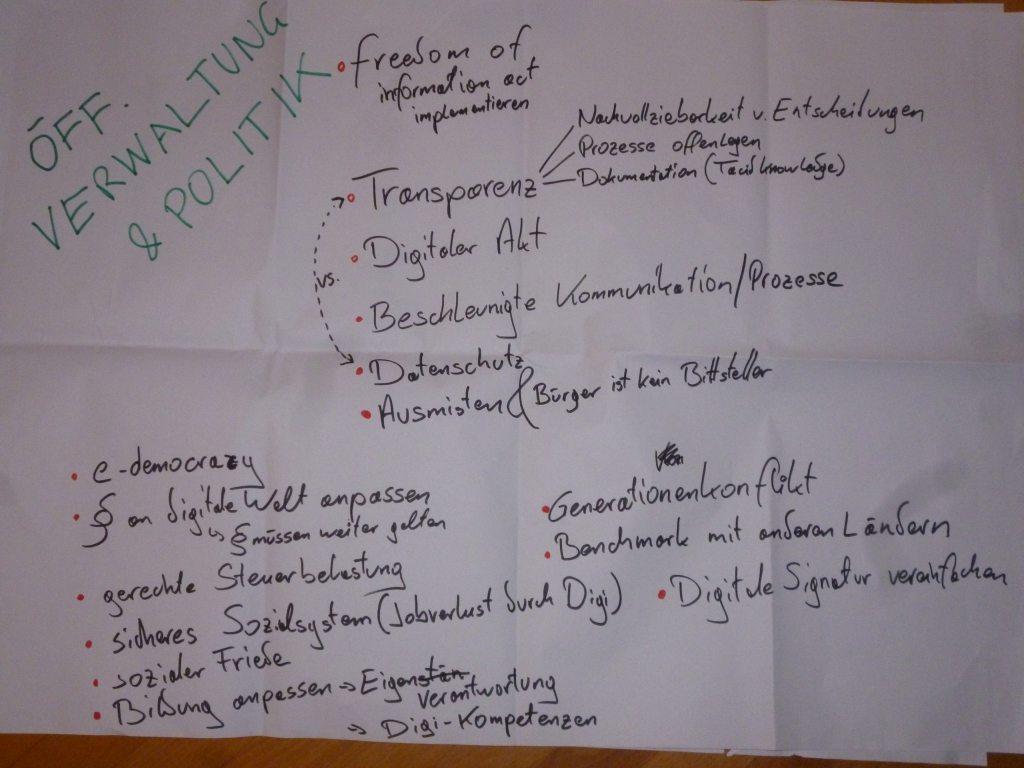 ÖFF.
VERWALTUNG
& POLITIK
• freedom of
information act
implementieren
Nachvollziehbarkeit v. Entscheidungen
Prozesse offenlegen
Dokumentation (Tacid knowledge)
• Transparenz
vs.
• Digitaler Akt
• Beschleunigte Kommunikation/Prozesse
• Datenschutz
• Ausmisten & Bürger ist kein Bittsteller
• e-democrazy
• § an digitale Welt anpassen
↳ § müssen weiter gelten
• gerechte Steuerbelastung
• sicheres Sozialsystem (Jobverlust durch Digi)
• sozialer Friede
• Bildung anpassen → Eigen
verantwortung
→ Digi-Kompetenzen
• Generationenkonflikt
• Benchmark mit anderen Ländern
• Digitale Signatur vereinfachen